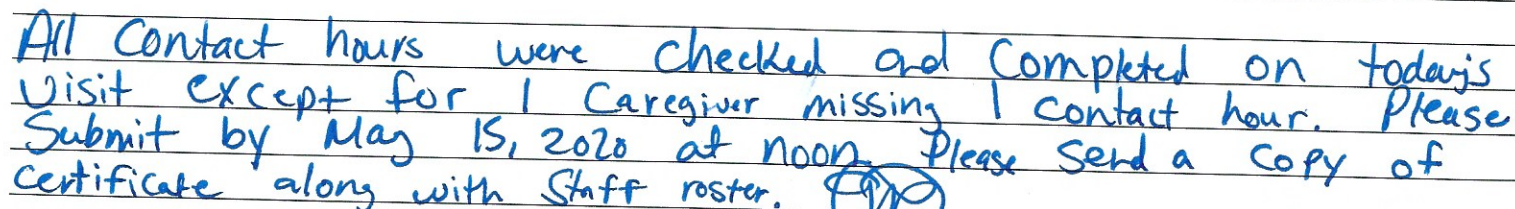 All Contact hours were checked and Completed on today's
visit except for 1 Caregiver missing 1 contact hour. Please
Submit by May 15, 2020 at noon. Please Send a copy of
certificate along with Staff roster.